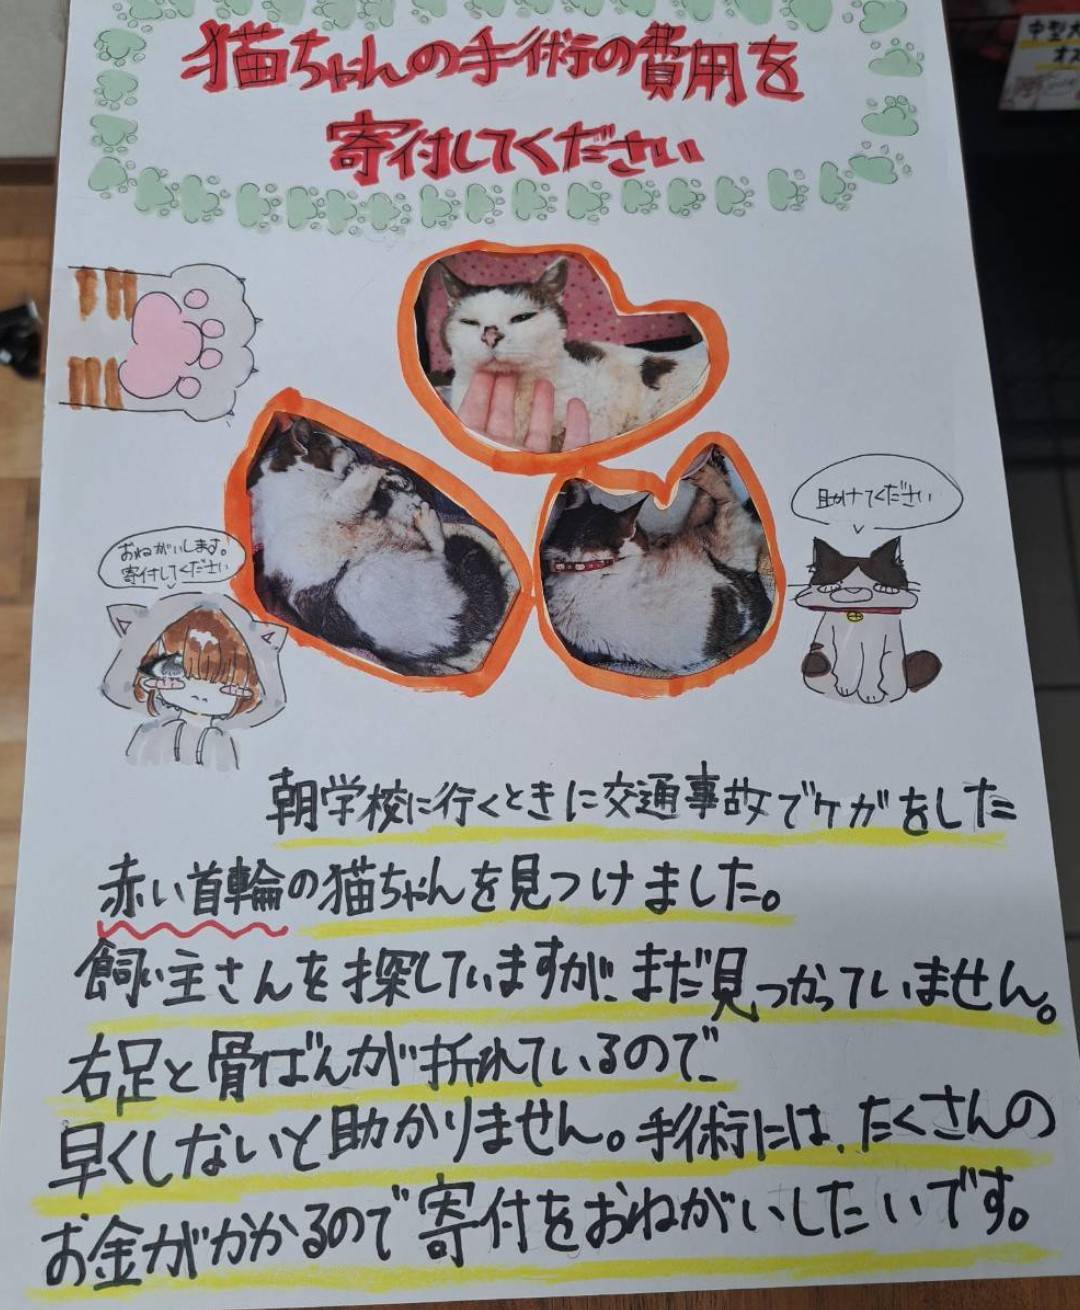 猫ちゃんの手術の費用を
寄付してください
中型犬
オス
助けてください
おねがいします。
寄付してください
朝学校に行くときに交通事故でケガをした
赤い首輪の猫ちゃんを見つけました。
飼い主さんを探していますが、まだ見つかっていません。
右足と骨ばんが折れているので
早くしないと助かりません。手術には、たくさんの
お金がかかるので寄付をおねがいしたいです。